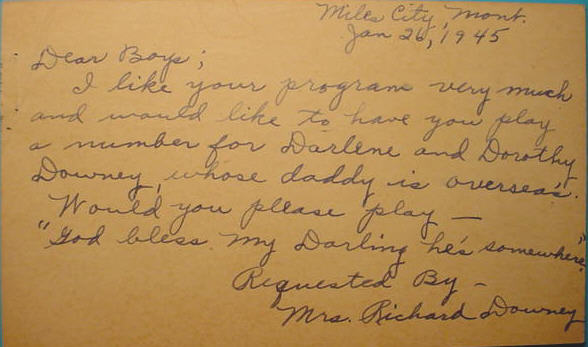 Miles City, Mont.
Jan 26, 1945
Dear Boys;
I like your program very much
and would like to have you play
a number for Darlene and Dorothy
Downey, whose daddy is overseas.
Would you please play —
"God bless my Darling he's somewhere"
Requested By —
Mrs. Richard Downey